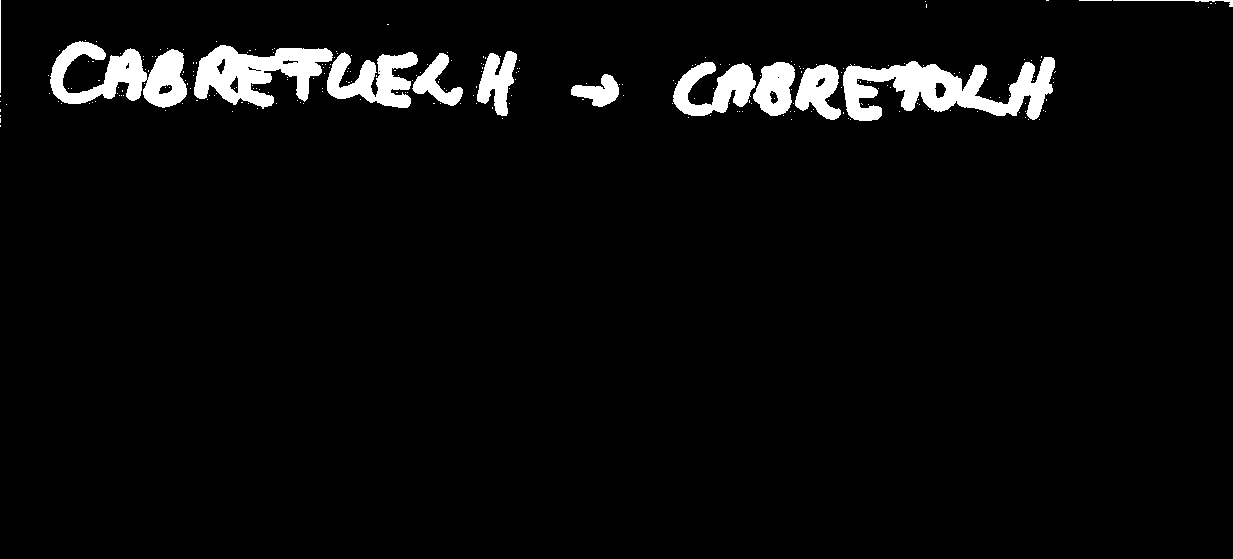 CABRETUELH → CABRETOLH